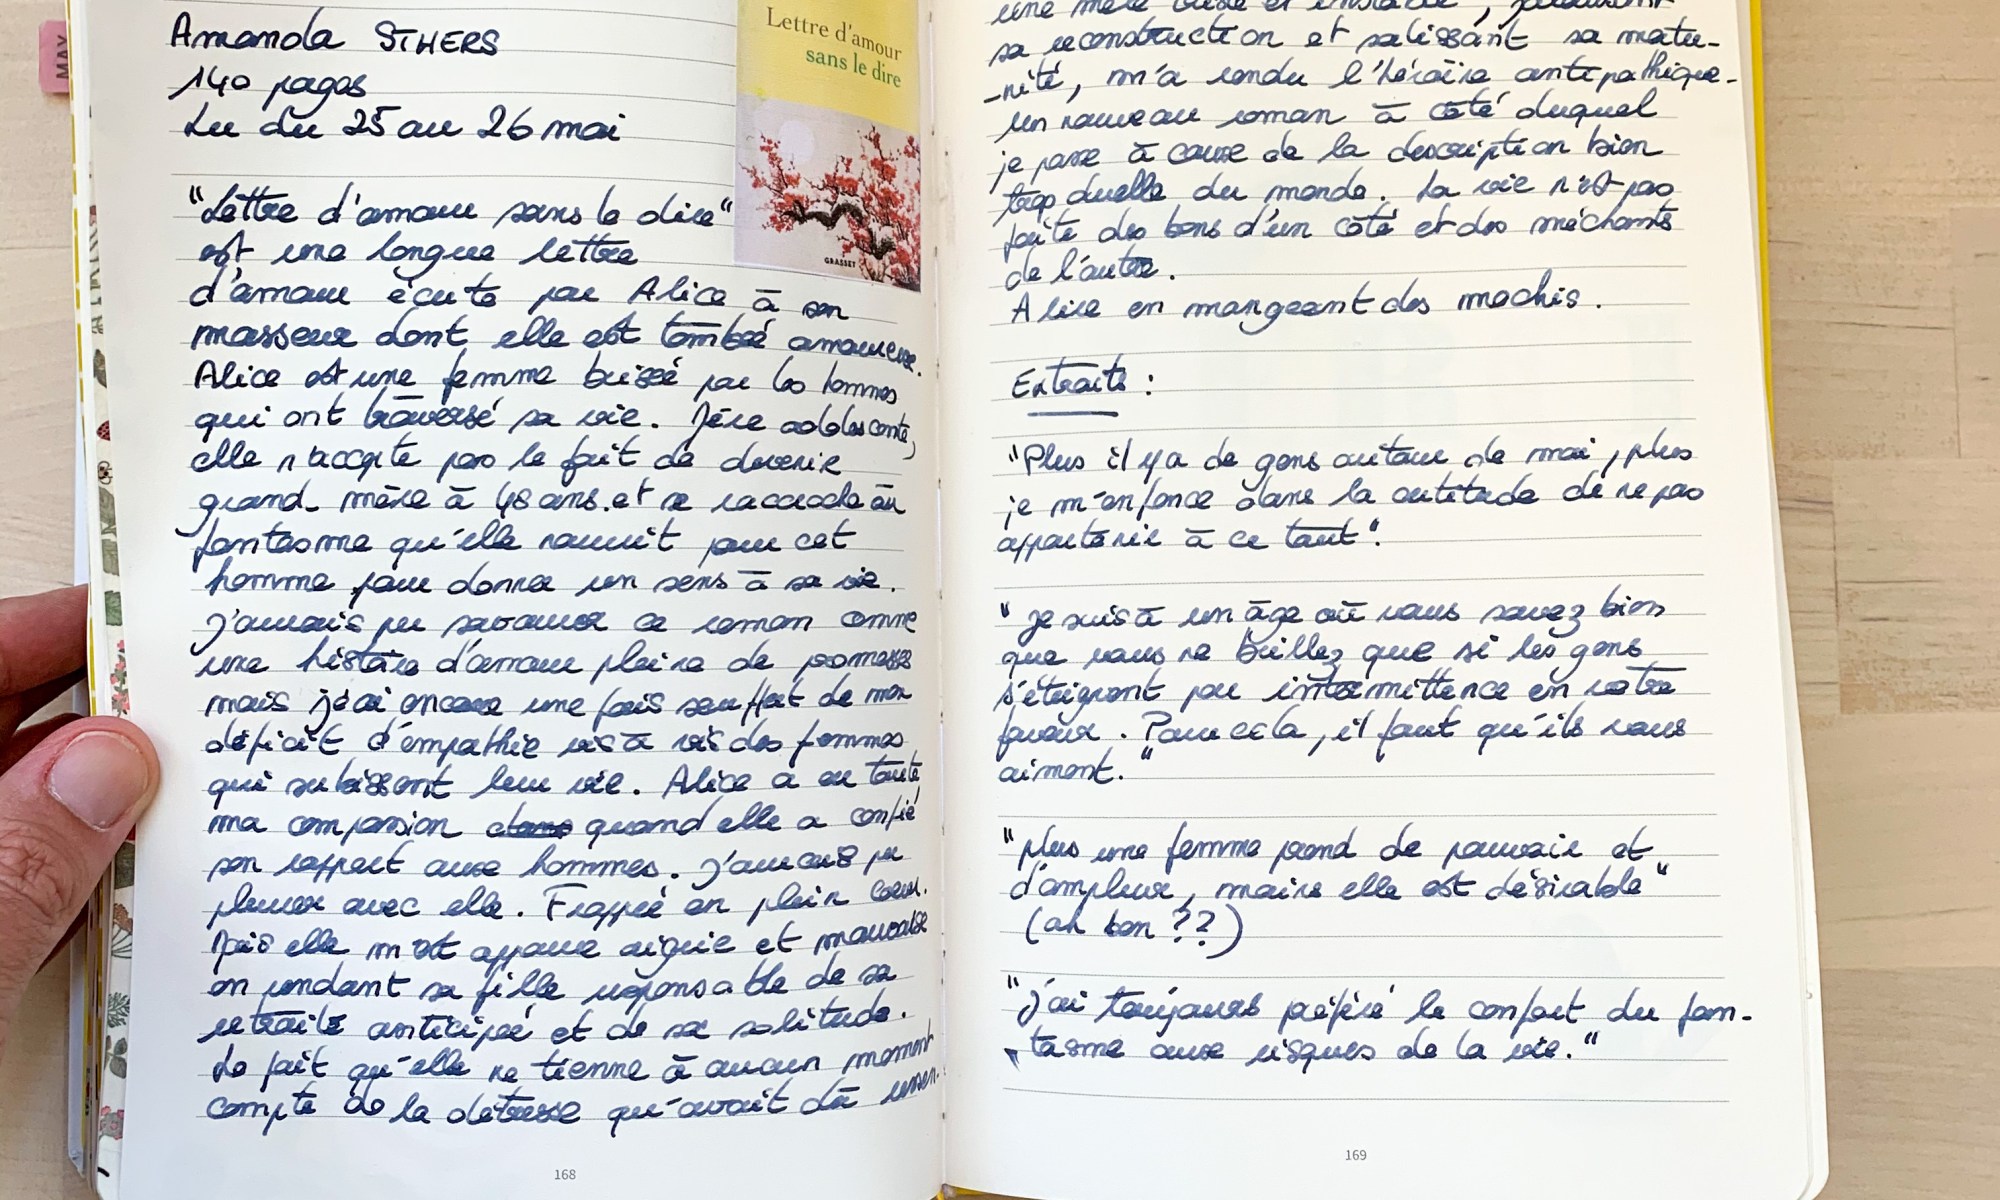 MAY
Amanda STHERS
140 pages
Lu du 25 au 26 mai
Lettre d'amour
sans le dire
GRASSET
"Lettre d'amour sans le dire"
est une longue lettre
d'amour écrite par Alice à son
masseur dont elle est tombé amoureuse.
Alice est une femme brisée par les hommes
qui ont traversé sa vie. Mère adolescente,
elle n'accepte pas le fait de devenir
grand-mère à 48 ans. et se raccroche au
fantasme qu'elle nourrit pour cet
homme pour donner un sens à sa vie.
J'aurais pu savourer ce roman comme
une histoire d'amour pleine de promesses
mais j'ai encore une fois souffert de mon
déficit d'empathie vis à vis des femmes
qui subissent leur vie. Alice a eu toute
ma compassion quand elle a confié
son rapport aux hommes. J'aurais pu
pleurer avec elle. Frappée en plein coeur.
Puis elle m'est apparue aigrie et mauvaise
en rendant sa fille responsable de sa
retraite anticipée et de sa solitude.
Le fait qu'elle ne tienne à aucun moment
compte de la détresse qu'avait dû ressen-
168
une mère triste et instable,
sa reconstruction et salissant sa mater-
-nité, m'a rendu l'héroïne antipathique-
un nouveau roman à côté duquel
je passe à cause de la description bien
trop duelle du monde. La vie n'est pas
faite des bons d'un côté et des méchants
de l'autre.
A lire en mangeant des mochis.
Extraits :
"Plus il y a de gens autour de moi, plus
je m'enfonce dans la certitude de ne pas
appartenir à ce tout".
"Je suis à un âge où vous savez bien
que vous ne brillez que si les gens
s'éteignent par intermittence en votre
faveur. Pour cela, il faut qu'ils vous
aiment."
"plus une femme prend de pouvoir et
d'ampleur, moins elle est désirable"
(ah bon ??)
"J'ai toujours préféré le confort du fan-
tasme aux risques de la vie."
169